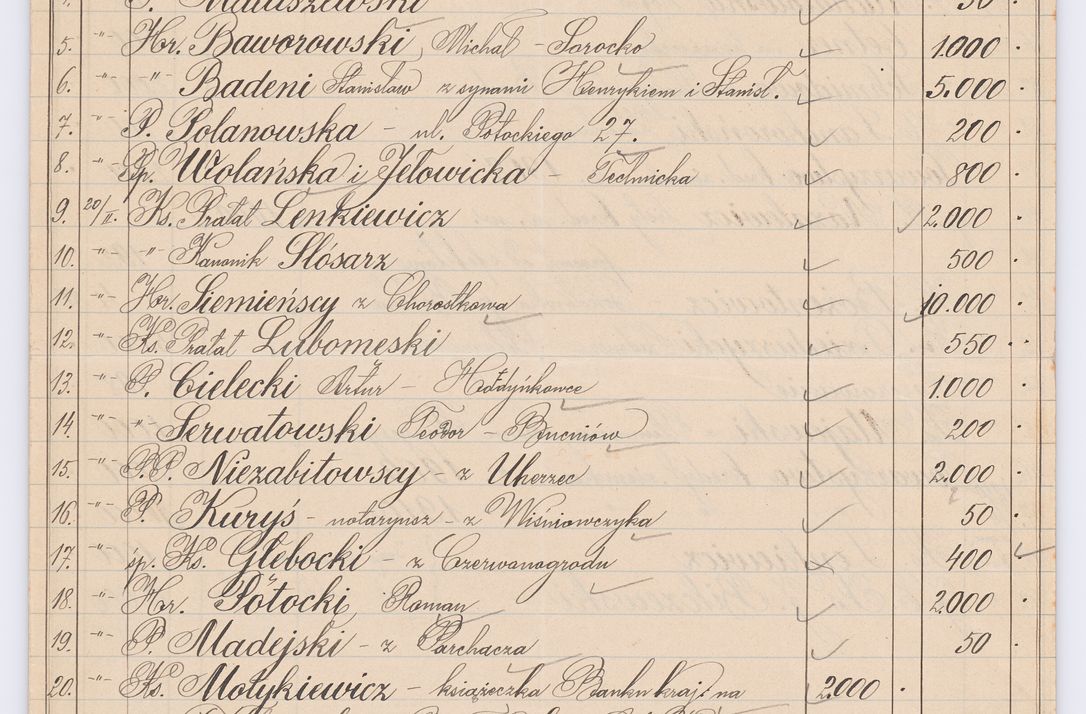 Matuszewski 50
5. -"- Hr. Baworowski, Michał - Sorocko 1.000 .
6. -"- -"- Badeni Stanisław z synami Henrykiem i Stanisł. 5.000 .
7. -"- P. Polanowska - ul. Potockiego 27. 200 .
8. -"- Pp. Wolańska i Jełowicka - Technicka 800 .
9. 20/II. Ks. Prałat Lenkiewicz 2.000 .
10. -"- " Kanonik Slósarz 500 .
11. -"- Hr. Siemieńscy z Chorostkowa 10.000 .
12. -"- Ks. Prałat Lubomęski 550 .
13. -"- P. Cielecki Artur - Hadyńkowce 1.000 .
14. -"- " Serwatowski Teodor - Bucniów 200 .
15. -"- P.P. Niezabitowscy - z Uherzec 2.000 .
16. -"- P. Kuryś - notaryusz - z Wiśniowczyka 50 .
17. -"- śp. Ks. Głębocki - z Czerwonogrodu 400 .
18. -"- Hr. Potocki, Roman 2.000 .
19. -"- P. Madejski - z Parchacza 50 .
20. -"- Ks. Motykiewicz - książeczka Banku kraj. na 2.000 .